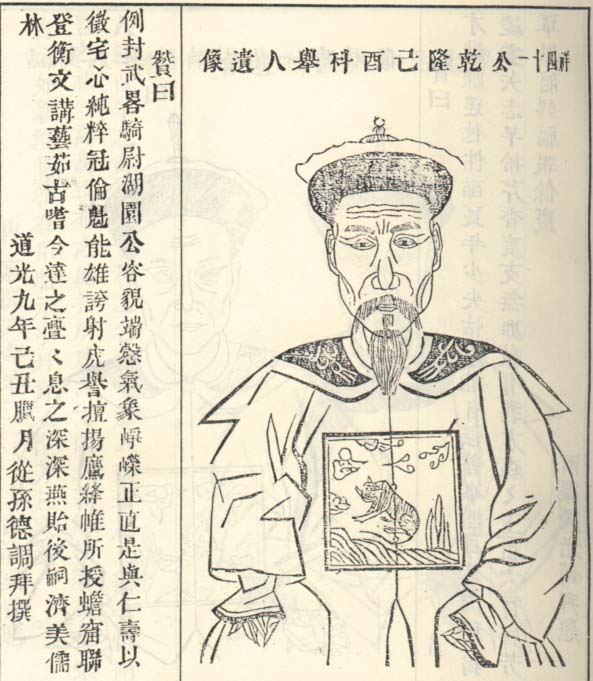 祥四十一公乾隆己酉科舉人遺像
贊曰
例封武畧騎尉湖園公容貌端慤氣象崢嶸正直是與仁壽以
徵宅心純粹冠倫魁能雄誇射虎譽擅揚鷹絳帷所授蟾窟聯
登衡文講藝茹古嗜今達之亹〻息之深深燕貽後嗣濟美儒
林　道光九年己丑臘月從孫德調拜撰